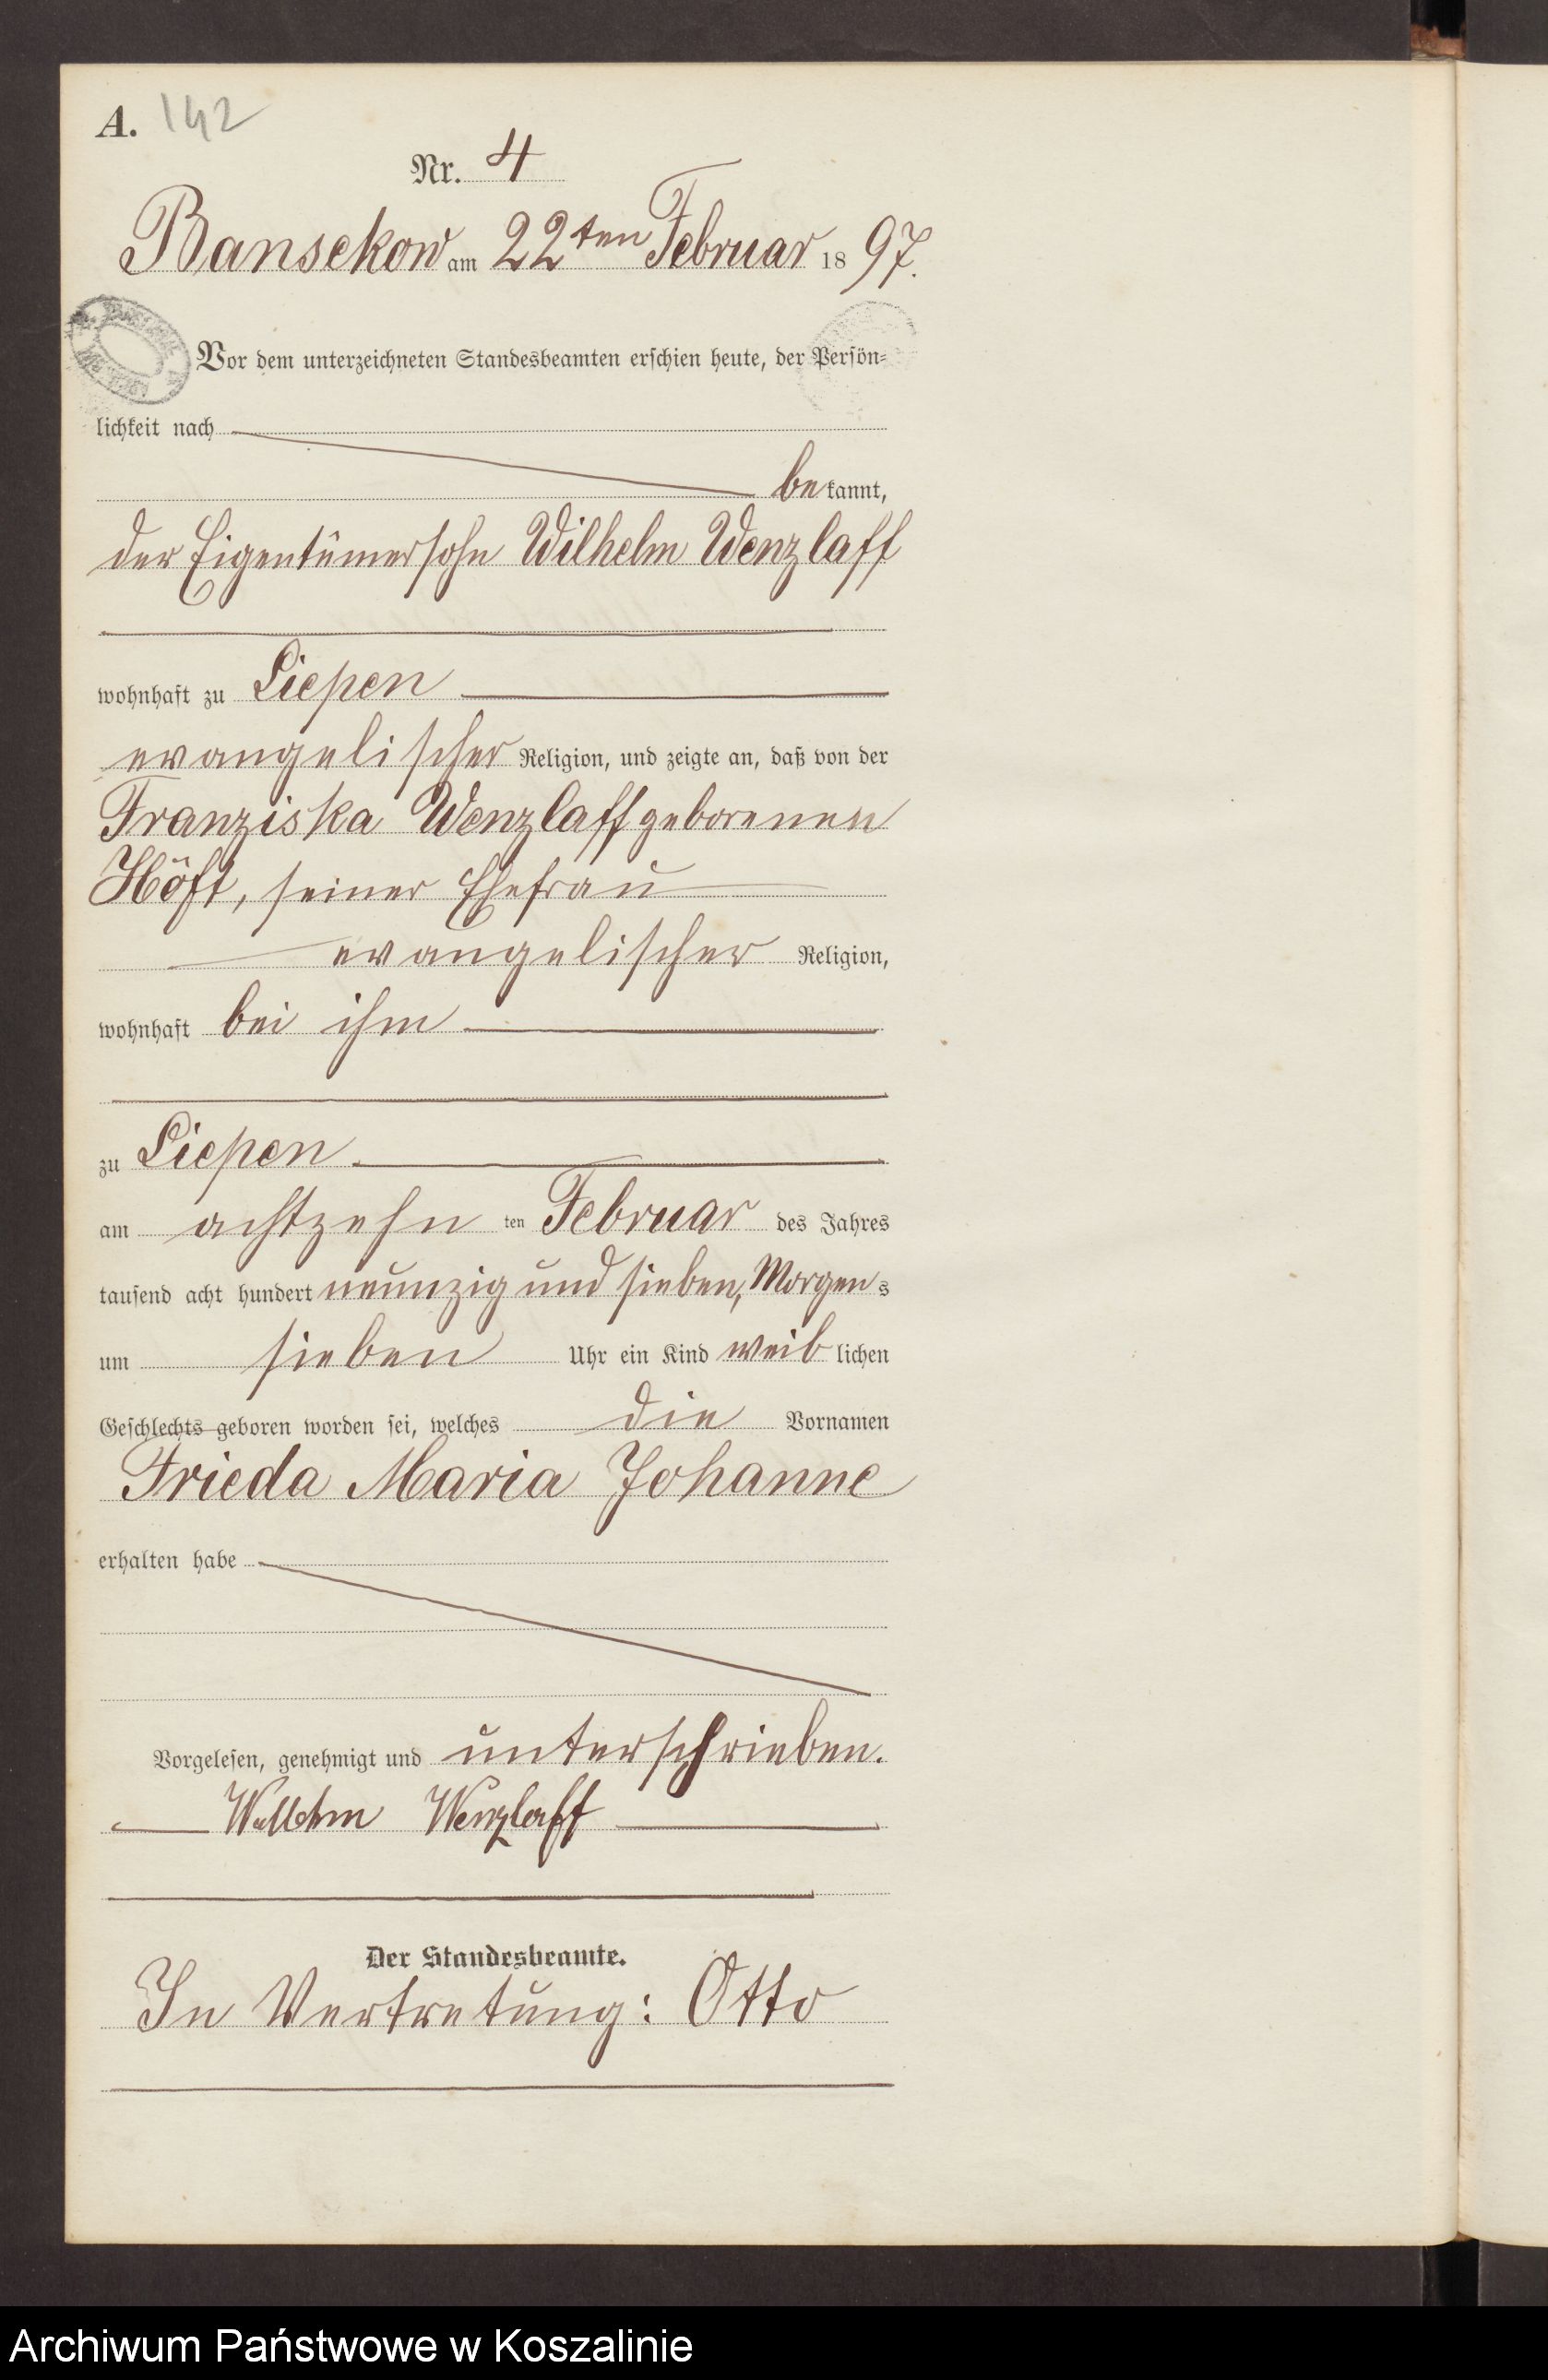 A. 142
Nr. 4
Bansekow am 22ten Februar 1897.
Vor dem unterzeichneten Standesbeamten erschien heute, der Persön-
lichkeit nach
bekannt,
der Eigentümersohn Wilhelm Wenzlaff
wohnhaft zu Liepen
evangelischer Religion, und zeigte an, daß von der
Franziska Wenzlaff geborenen
Höft, seiner Ehefrau
evangelischer Religion,
wohnhaft bei ihm
zu Liepen
am achtzehn ten Februar des Jahres
tausend acht hundert neunzig und sieben, Morgens
um sieben Uhr ein Kind weiblichen
Geschlechts geboren worden sei, welches die Vornamen
Frieda Maria Johanne
erhalten habe
Vorgelesen, genehmigt und unterschrieben.
Willhelm Wenzlaff
Der Standesbeamte.
In Vertretung: Otto
Archiwum Państwowe w Koszalinie